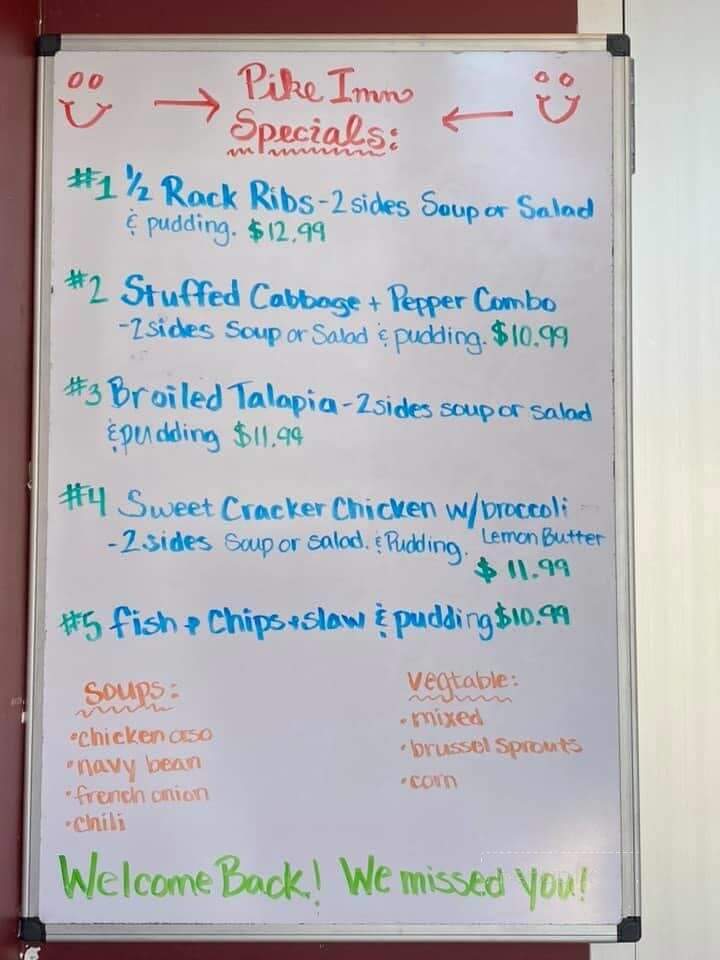 Pike Inn
Specials:
#1 1/2 Rack Ribs-2 sides Soup or Salad
& pudding. $12.99
#2 Stuffed Cabbage + Pepper Combo
-2 sides Soup or Salad & pudding. $10.99
#3 Broiled Talapia-2 sides soup or salad
& pudding $11.99
#4 Sweet Cracker Chicken w/broccoli
-2 sides Soup or salad. & Pudding. Lemon Butter
$11.99
#5 fish + Chips + slaw & pudding $10.99
Soups:
•chicken orso
•navy bean
•french onion
•chili
Vegtable:
•mixed
•brussel sprouts
•corn
Welcome Back! We missed you!